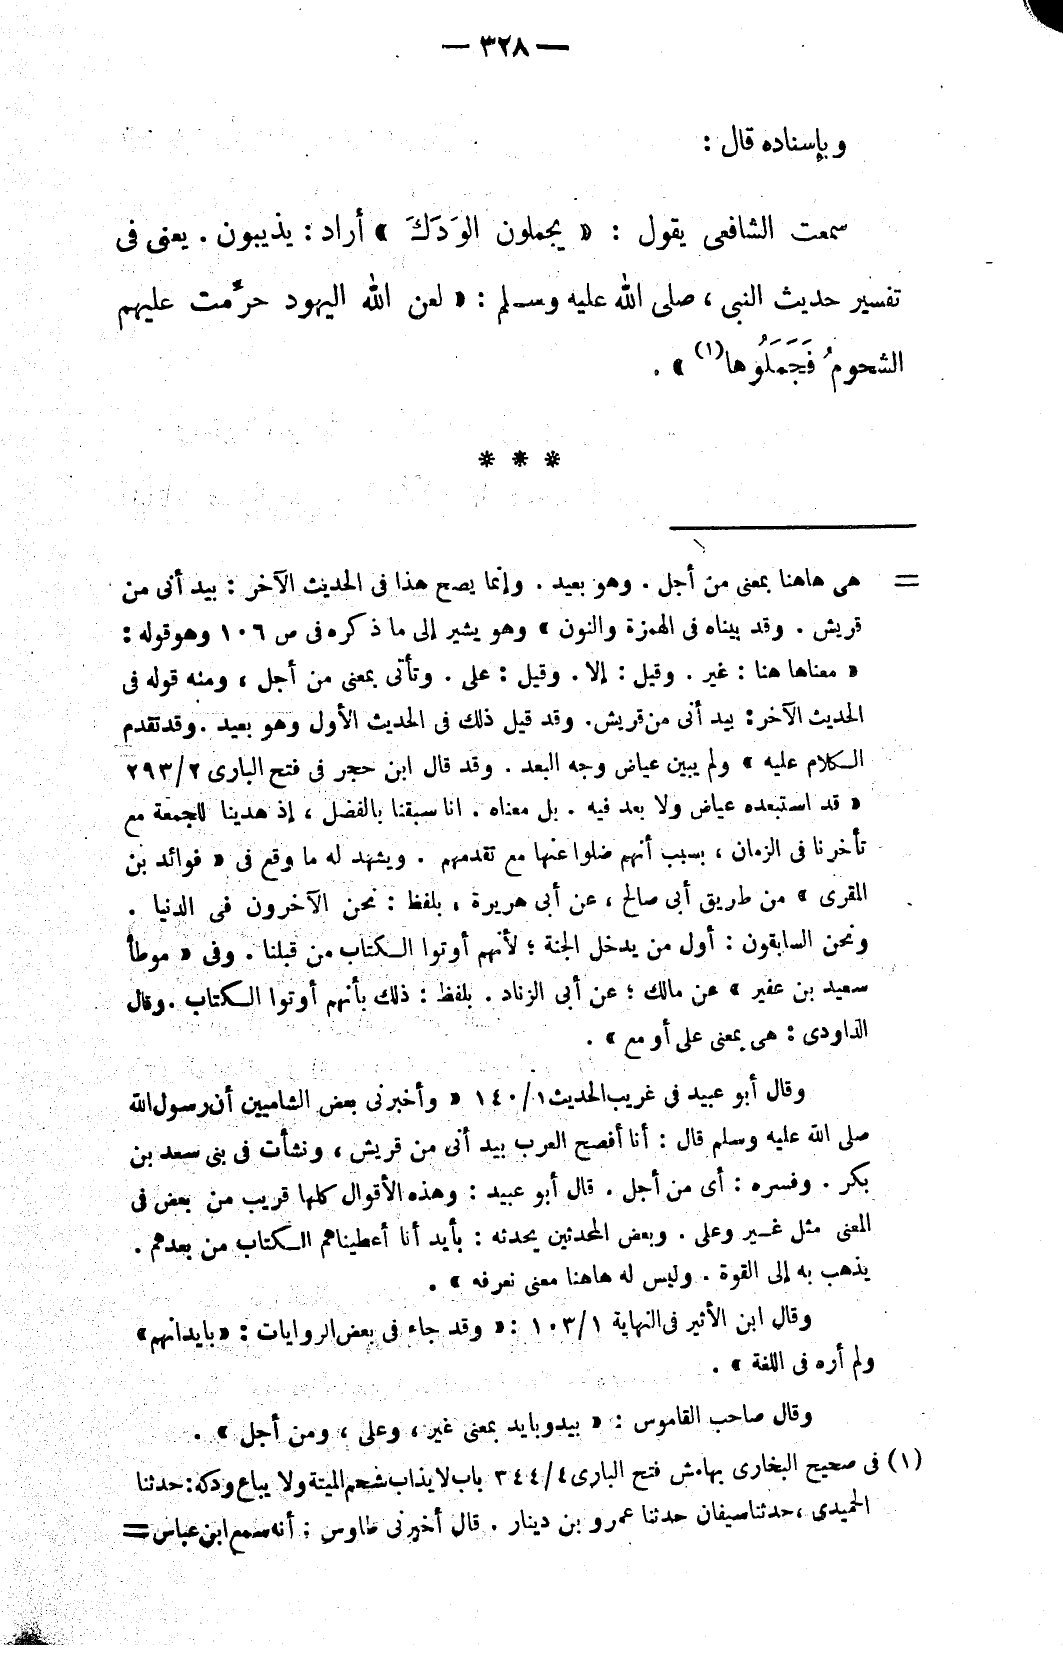 — ٣٢٨ —
وبإسناده قال :
سمعت الشافعى يقول : « يجملون الوَدَكَ » أراد : يذيبون . يعنى فى
تفسير حديث النبى ، صلى الله عليه وسلم : « لعن الله اليهود حرِّمت عليهم
الشحومُ فَجَمَلُوها(١) » .
* * *
= هى هاهنا بمعنى من أجل . وهو بعيد . وإنما يصح هذا فى الحديث الآخر : بيد أنى من
قريش . وقد بيناه فى الهمزة والنون » وهو يشير إلى ما ذكره فى ص ١٠٦ وهو قوله :
« معناها هنا : غير . وقيل : إلا . وقيل : على . وتأتى بمعنى من أجل ، ومنه قوله فى
الحديث الآخر : بيد أنى من قريش . وقد قيل ذلك فى الحديث الأول وهو بعيد . وقد تقدم
الكلام عليه » ولم يبين عياض وجه البعد . وقد قال ابن حجر فى فتح البارى ٢/٢٩٣
« قد استبعده عياض ولا بعد فيه . بل معناه . انا سبقنا بالفضل ، إذ هدينا للجمعة مع
تأخرنا فى الزمان ، بسبب أنهم ضلوا عنها مع تقدمهم . ويشهد له ما وقع فى « فوائد بن
المقرى » من طريق أبى صالح ، عن أبى هريرة ، بلفظ : نحن الآخرون فى الدنيا .
ونحن السابقون : أول من يدخل الجنة ؛ لأنهم أوتوا الكتاب من قبلنا . وفى « موطأ
سعيد بن عفير » عن مالك ؛ عن أبى الزناد . بلفظ : ذلك بأنهم أوتوا الكتاب . وقال
الداودى : هى بمعنى على أو مع » .
وقال أبو عبيد فى غريب الحديث ١/١٤٠ « وأخبرنى بعض الشاميين أن رسول الله
صلى الله عليه وسلم قال : أنا أفصح العرب بيد أنى من قريش ، ونشأت فى بنى سعد بن
بكر . وفسره : أى من أجل . قال أبو عبيد : وهذه الأقوال كلها قريب من بعض فى
المعنى مثل غير وعلى . وبعض المحدثين يحدثه : بأيد أنا أعطيناهم الكتاب من بعدهم .
يذهب به إلى القوة . وليس له هاهنا معنى نعرفه » .
وقال ابن الأثير فى النهاية ١/١٠٣ : « وقد جاء فى بعض الروايات : « بايد انهم »
ولم أره فى اللغة » .
وقال صاحب القاموس : « بيد وبايد بمعنى غير ، وعلى ، ومن أجل » .
(١) فى صحيح البخارى بهامش فتح البارى ٤/٣٤٤ باب لا يذاب شحم الميتة ولا يباع ودكه : حدثنا
الحميدى ، حدثنا سيفان حدثنا عمرو بن دينار . قال أخبرنى طاوس : أنه سمع ابن عباس =